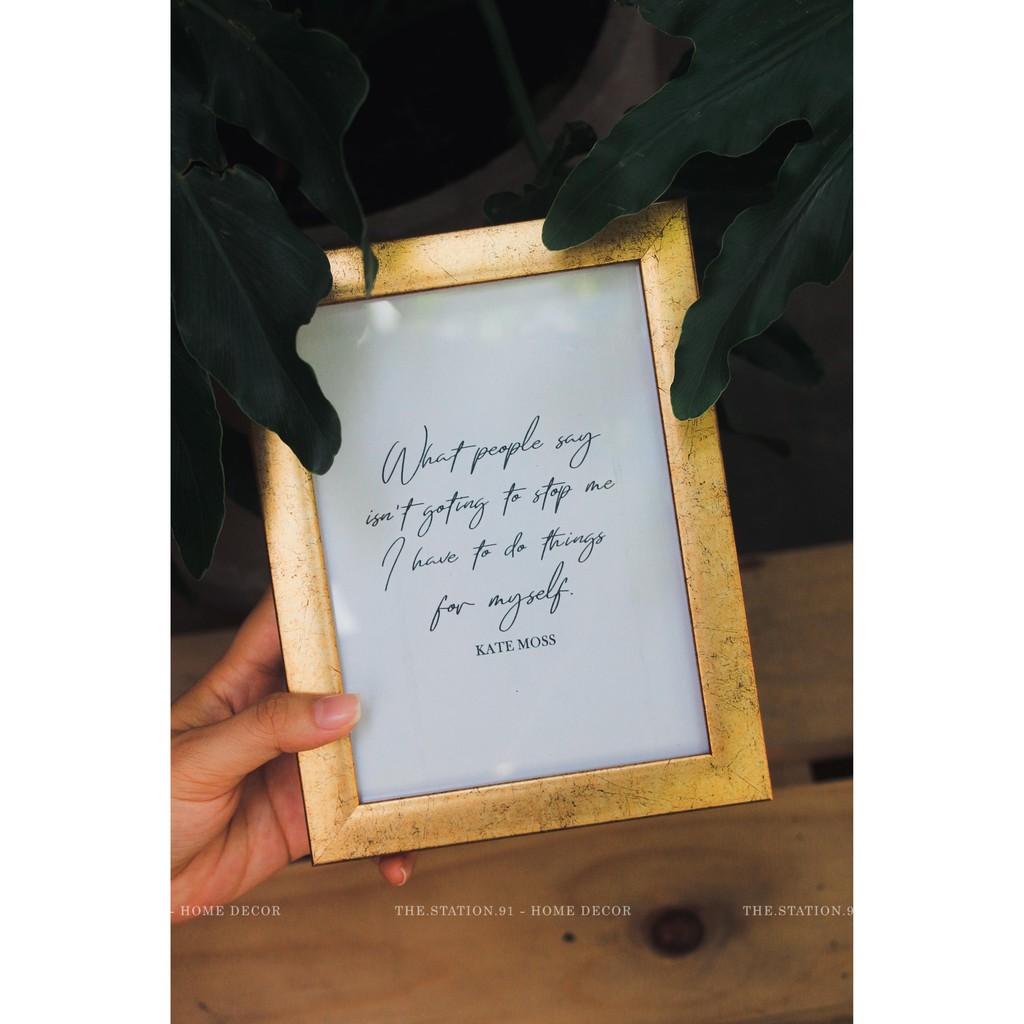 What people say
isn't goting to stop me
I have to do things
for myself.
KATE MOSS
- HOME DECOR THE.STATION.91 - HOME DECOR THE.STATION.9